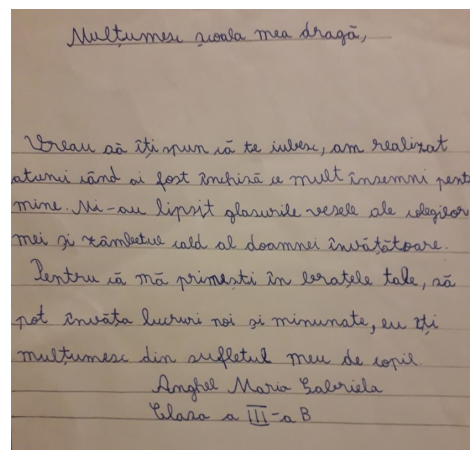 Mulțumesc școala mea dragă,
Vreau să îți spun că te iubesc, am realizat
atunci când ai fost închisă ce mult însemni pent
mine. Mi-au lipsit glasurile vesele ale colegilor
mei și zâmbetul cald al doamnei învățătoare.
Pentru că mă primești în brațele tale, să
pot învăța lucruri noi și minunate, eu îți
mulțumesc din sufletul meu de copil.
Anghel Maria Gabriela
Clasa a III-a B